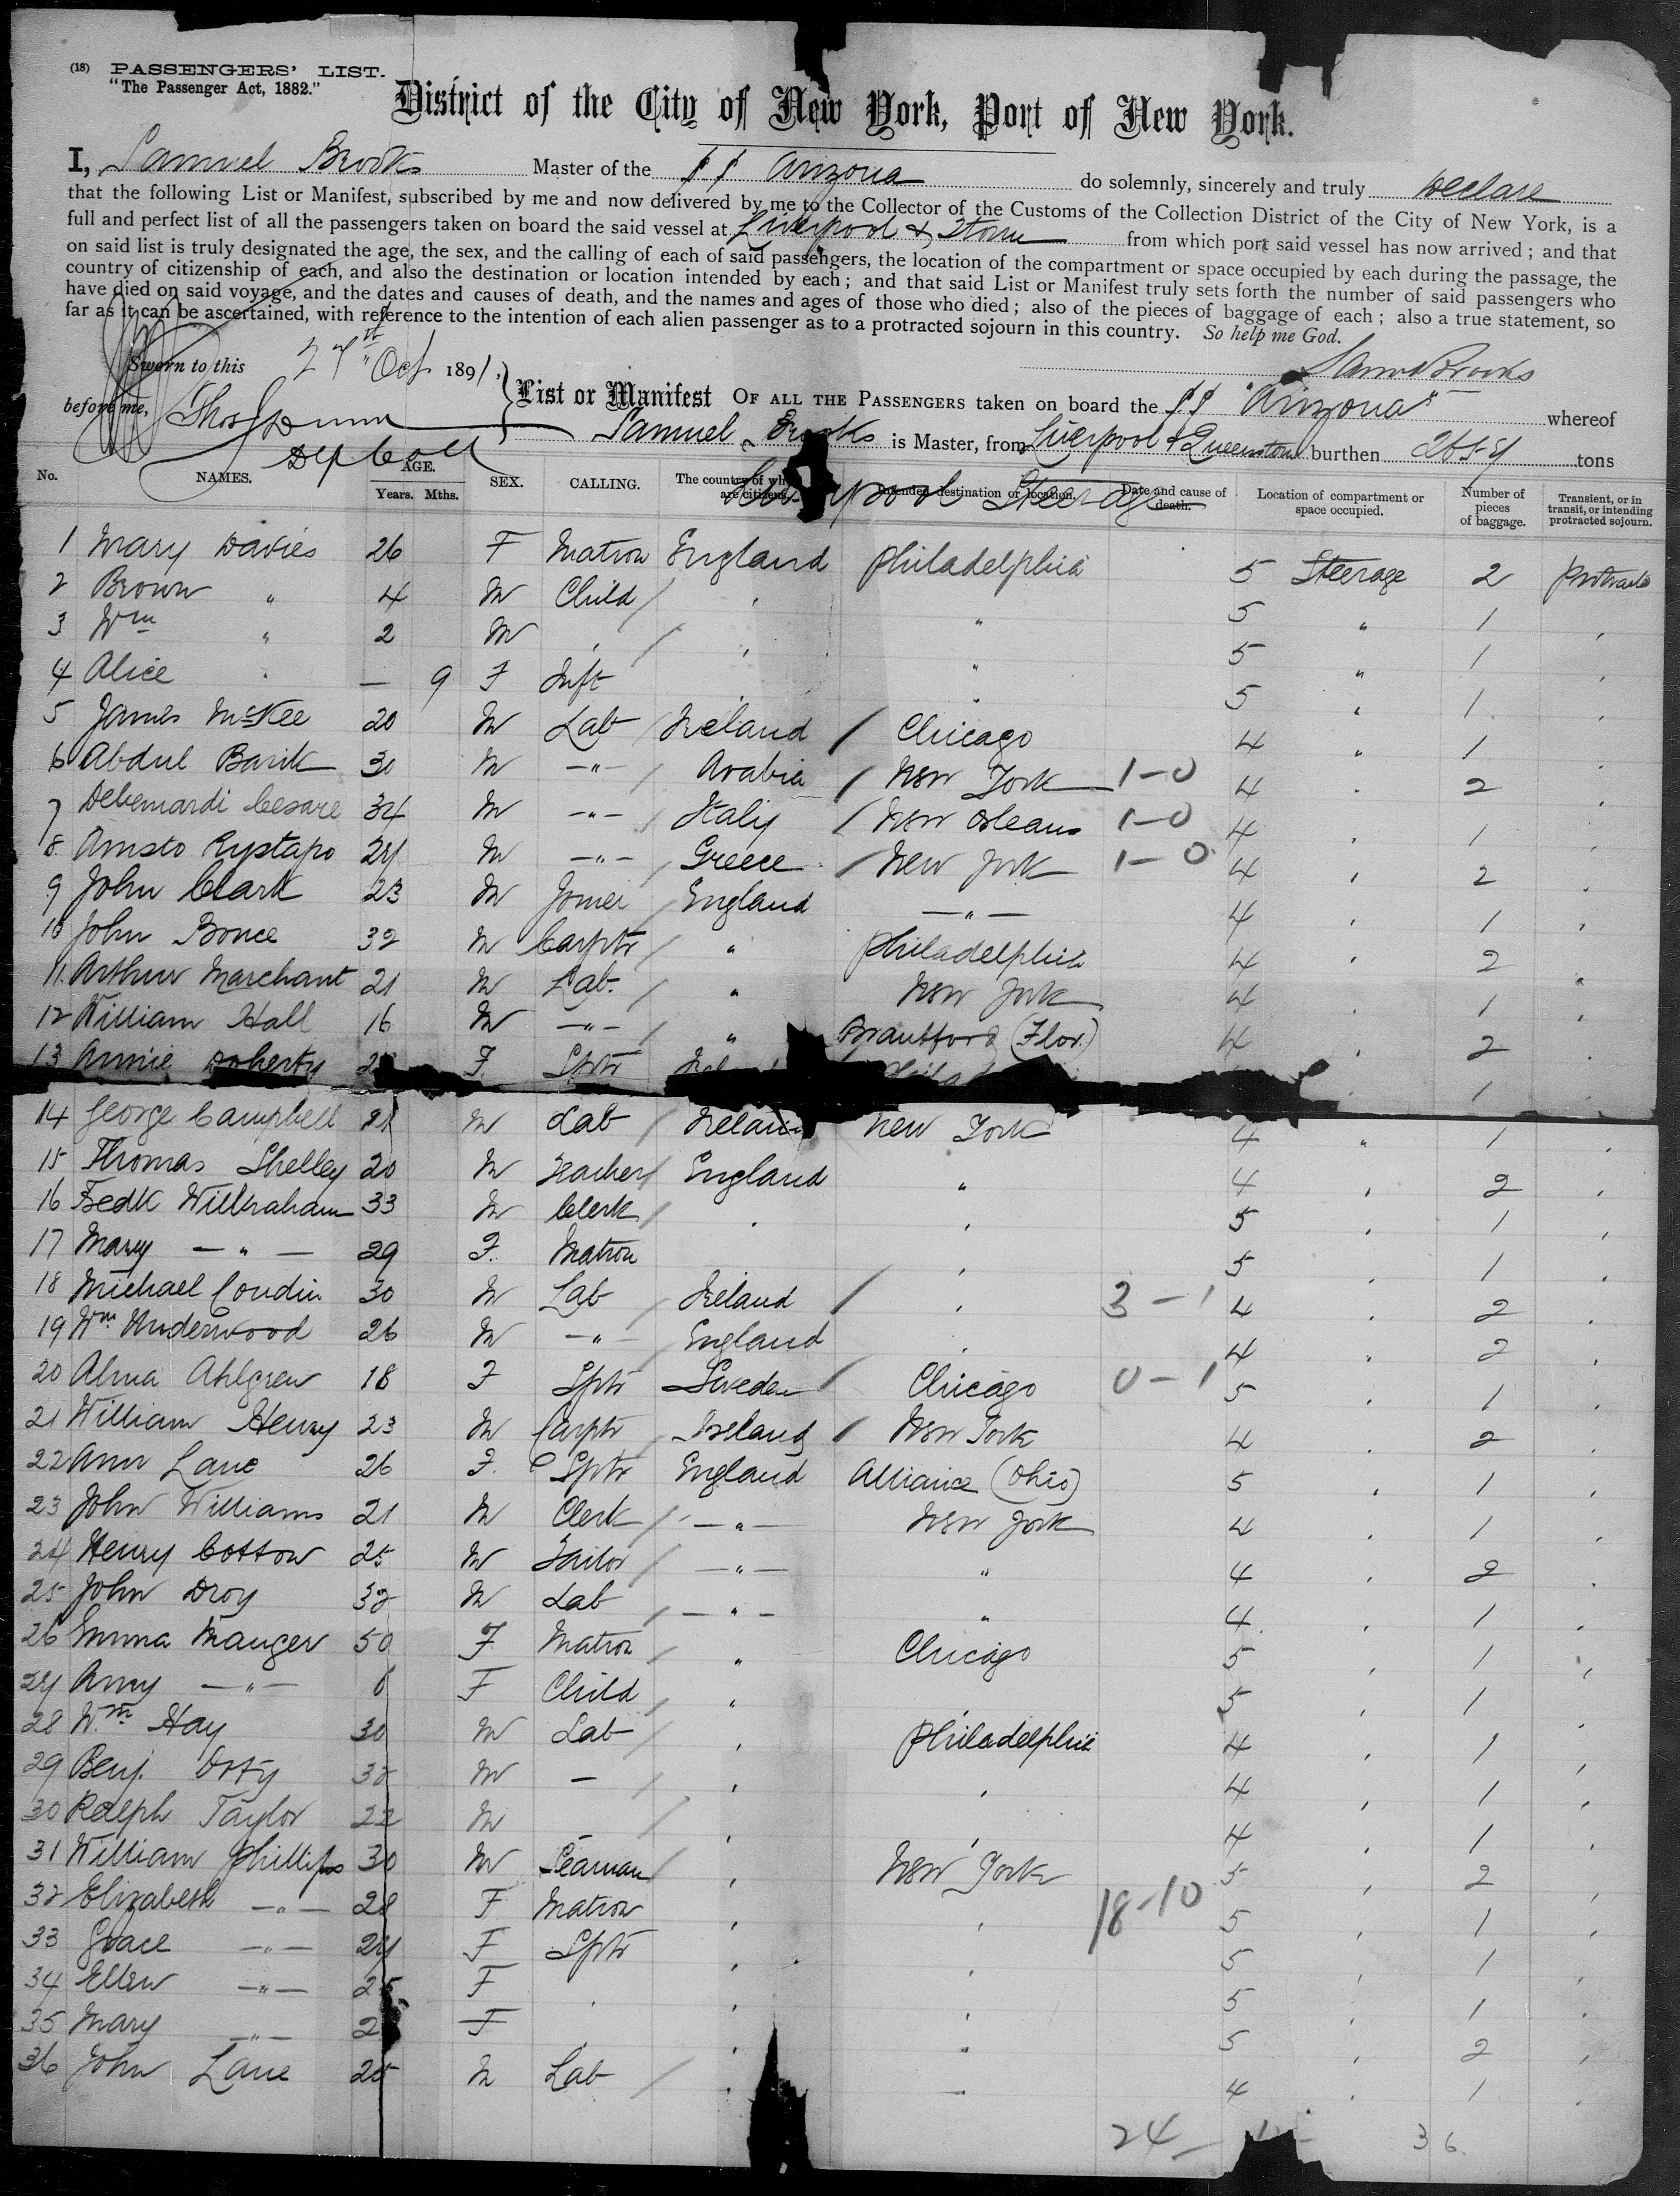 (18) PASSENGERS' LIST.
"The Passenger Act, 1882."
District of the City of New York, Port of New York.
I, Samuel Brooks Master of the SS Arizona do solemnly, sincerely and truly declare
that the following List or Manifest, subscribed by me and now delivered by me to the Collector of the Customs of the Collection District of the City of New York, is a
full and perfect list of all the passengers taken on board the said vessel at Liverpool & from which port said vessel has now arrived; and that
on said list is truly designated the age, the sex, and the calling of each of said passengers, the location of the compartment or space occupied by each during the passage, the
country of citizenship of each, and also the destination or location intended by each; and that said List or Manifest truly sets forth the number of said passengers who
have died on said voyage, and the dates and causes of death, and the names and ages of those who died; also of the pieces of baggage of each; also a true statement, so
far as it can be ascertained, with reference to the intention of each alien passenger as to a protracted sojourn in this country. So help me God.
Sworn to this 27th Oct 1891.
Saml Brooks
before me, Thos Dunn
Dep Coll
List or Manifest OF ALL THE PASSENGERS taken on board the SS "Arizona" whereof
Samuel Brooks is Master, from Liverpool & Queenstown burthen tons
No. NAMES. AGE. Years. Mths. SEX. CALLING. The country of wh are citizens. Intended destination or location. Date and cause of death. Location of compartment or space occupied. Number of pieces of baggage. Transient, or in transit, or intending protracted sojourn.
Liverpool Steerage
1 Mary Davies 26 F Matron England Philadelphia 5 Steerage 2 Protracted
2 Brown " 4 M Child / " " 5 " 1 "
3 Wm " 2 M " / " " 5 " 1 "
4 Alice " — 9 F Inft " 5 " 1 "
5 James McKee 20 M Lab / Ireland / Chicago 4 " 1 "
6 Abdul Barik 30 M —"— / Arabia / New York 1-0 4 " 2 "
7 Debernardi Cesare 34 M —"— / Italy / New Orleans 1-0 4 " 1 "
8 Amsto Rystapo 27 M —"— / Greece / New York 1-0 4 " 2 "
9 John Clark 23 M Joiner / England —"— 4 " 1 "
10 John Bonce 32 M Carptr / " Philadelphia 4 " 2 "
11 Arthur Marchant 21 M Lab. / " New York 4 " 1 "
12 William Hall 16 M —"— / " Brantford (Flor.) 4 " 2 "
13 Annie Doherty F. Sptr 1
14 George Campbell 21 M Lab / Ireland New York 4 " 1 "
15 Thomas Shelley 20 M Teacher / England " 4 " 2 "
16 Fredk Wilbraham 33 M Clerk / " " 5 " 1 "
17 Mary —"— 29 F. Matron " 5 " 1 "
18 Michael Condin 30 M Lab / Ireland / " 3-1 4 " 2 "
19 Wm Underwood 26 M —"— / England " 4 " 2 "
20 Alma Ahlgren 18 F Sptr Sweden / Chicago 0-1 5 " 1 "
21 William Henry 23 M Carptr / Ireland / New York 4 " 2 "
22 Ann Lane 26 F. Sptr England Alliance (Ohio) 5 " 1 "
23 John Williams 21 M Clerk / —"— New York 4 " 1 "
24 Henry Cotton 25 M Tailor / —"— " 4 " 2 "
25 John Droy 32 M Lab / —"— " 4 " 1 "
26 Emma Mauger 50 F Matron / " Chicago 5 " 1 "
27 Amy —"— F Child / " " 5 " 1 "
28 Wm Hay 30 M Lab / " Philadelphia 4 " 1 "
29 Benj. 32 M — / " " 4 " 1 "
30 Ralph Taylor 22 M — / " " 4 " 1 "
31 William Phillips 30 M Seaman / " New York 5 " 2 "
32 Elizabeth —"— 28 F Matron " " 18-10 5 " 1 "
33 Grace —"— 27 F Sptr " " 5 " 1 "
34 Ellen —"— 25 F " " " 5 " 1 "
35 Mary —"— F " " " 5 " 2 "
36 John Lane 25 M Lab / " " 4 " 1 "
24 — 36